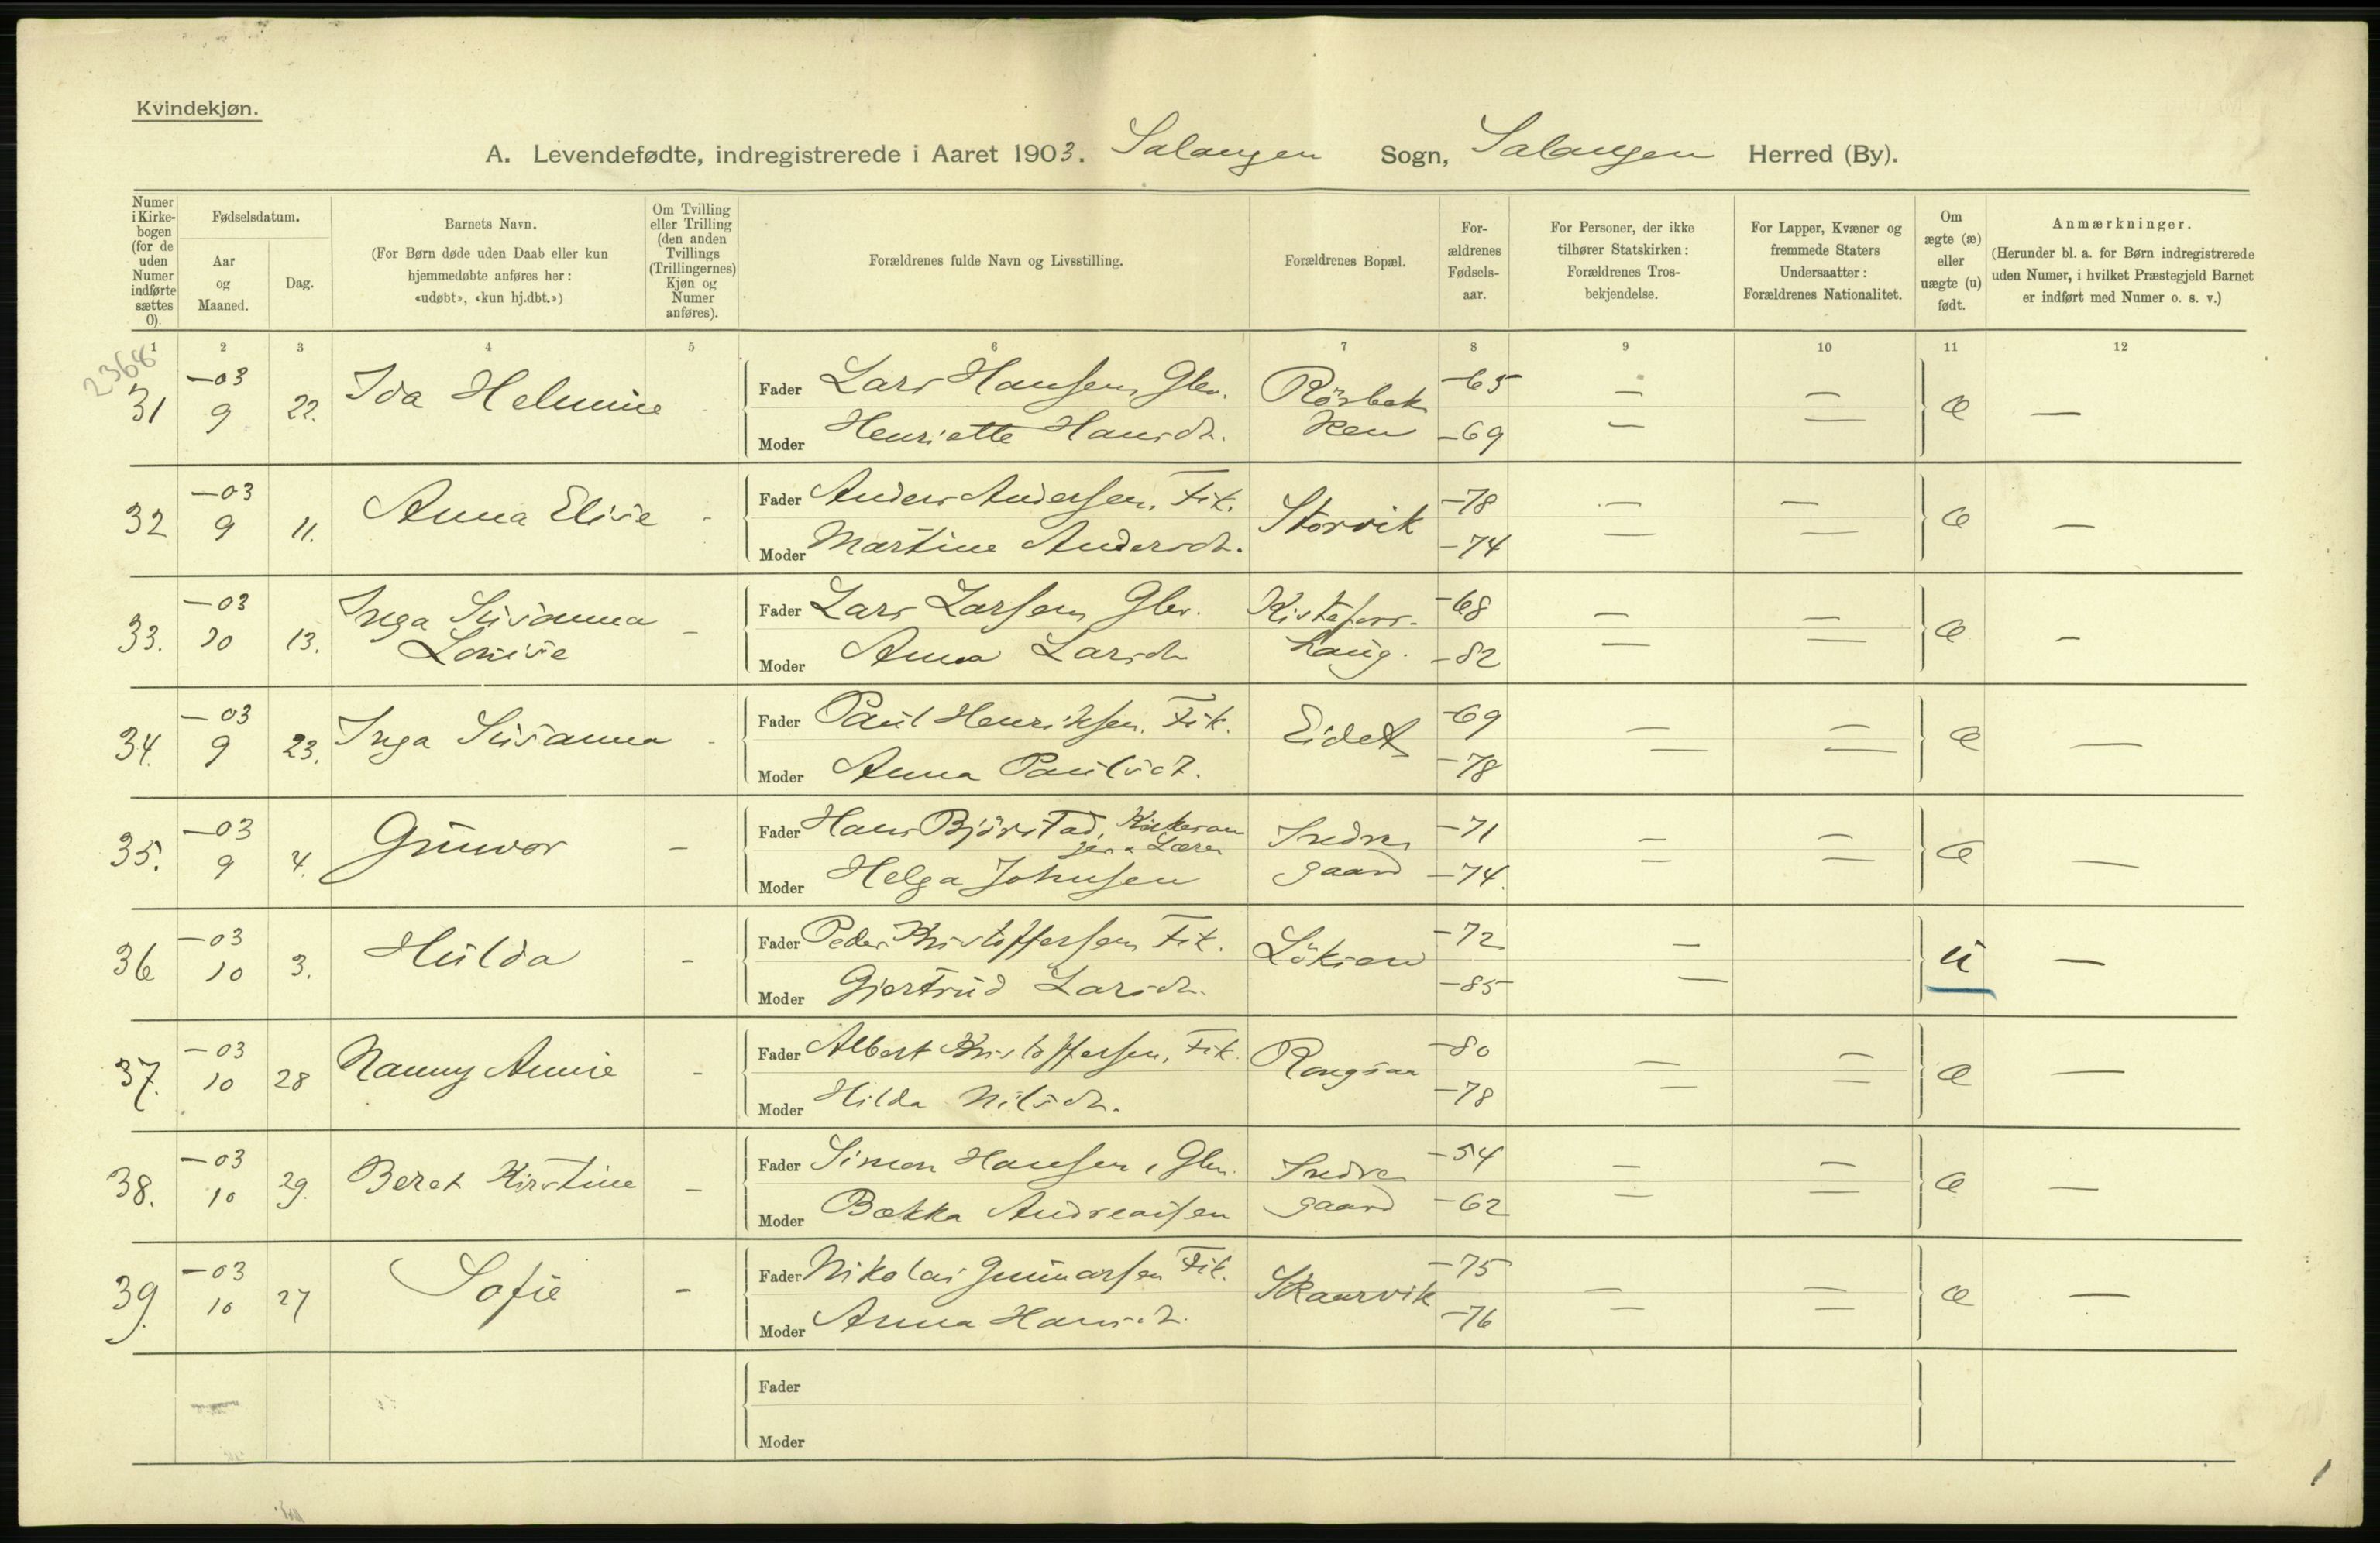 Kvindekjøn.
A. Levendefødte, indregistrerede i Aaret 1903. Salangen Sogn, Salangen Herred (By).
Numer i Kirkebogen (for de uden Numer indførte sættes 0).
Fødselsdatum.
Aar og Maaned.
Dag.
Barnets Navn.
(For Børn døde uden Daab eller kun hjemmedøbte anføres her: «udøbt», «kun hj.dbt.»)
Om Tvilling eller Trilling (den anden Tvillings (Trillingernes) Kjøn og Numer anføres).
Forældrenes fulde Navn og Livsstilling.
Forældrenes Bopæl.
Forældrenes Fødselsaar.
For Personer, der ikke tilhører Statskirken: Forældrenes Trosbekjendelse.
For Lapper, Kvæner og fremmede Staters Undersaatter: Forældrenes Nationalitet.
Om ægte (æ) eller uægte (u) født.
Anmærkninger.
(Herunder bl. a. for Børn indregistrerede uden Numer, i hvilket Præstegjeld Barnet er indført med Numer o. s. v.)
1 2 3 4 5 6 7 8 9 10 11 12
2368
31 —03 9 22. Ida Helmine Fader Lars Hansen, Gbr. Rösbakken —65 — — æ —
Moder Henriette Hansdt. —69 — —
32 —03 9 11. Anna Elise - Fader Anders Andersen, Fik. Storvik —78 — — æ —
Moder Martine Andersdt. —74 — —
33. —03 10 13. Inga Susanna Lovise - Fader Lars Larsen, Gbr. Kistefoss-haug. —68 — — æ —
Moder Anna Larsdt. —82 — —
34. —03 9 23. Inga Susanna - Fader Paul Henriksen, Fik. Eidet —69 — — æ —
Moder Anna Paulsdt. —78 — —
35. —03 9 4. Gunvor - Fader Hans Björstad, Kirkesanger & Lærer Indregaard —71 — — æ —
Moder Helga Johnsen —74. — —
36 —03 10 3. Hulda - Fader Peder Kristoffersen Fik. Löksen —72 — u —
Moder Gjertrud Larsdt. —85 —
37. —03 10 28 Nanny Annie - Fader Albert Kristoffersen, Fik. Rongsaa —80 — — æ —
Moder Hilda Nilsdt. —78 — —
38. —03 10 29. Beret Kirstine - Fader Simon Hansen, Gbr. Indregaard —54 — — æ —
Moder Bakka Andreassen —62 — —
39. —03 10 27 Sofie - Fader Nikolai Gunnarsen Fik. Skaarvik —75 — — æ —
Moder Anna Hansdt. —76 — —
Fader
Moder
1